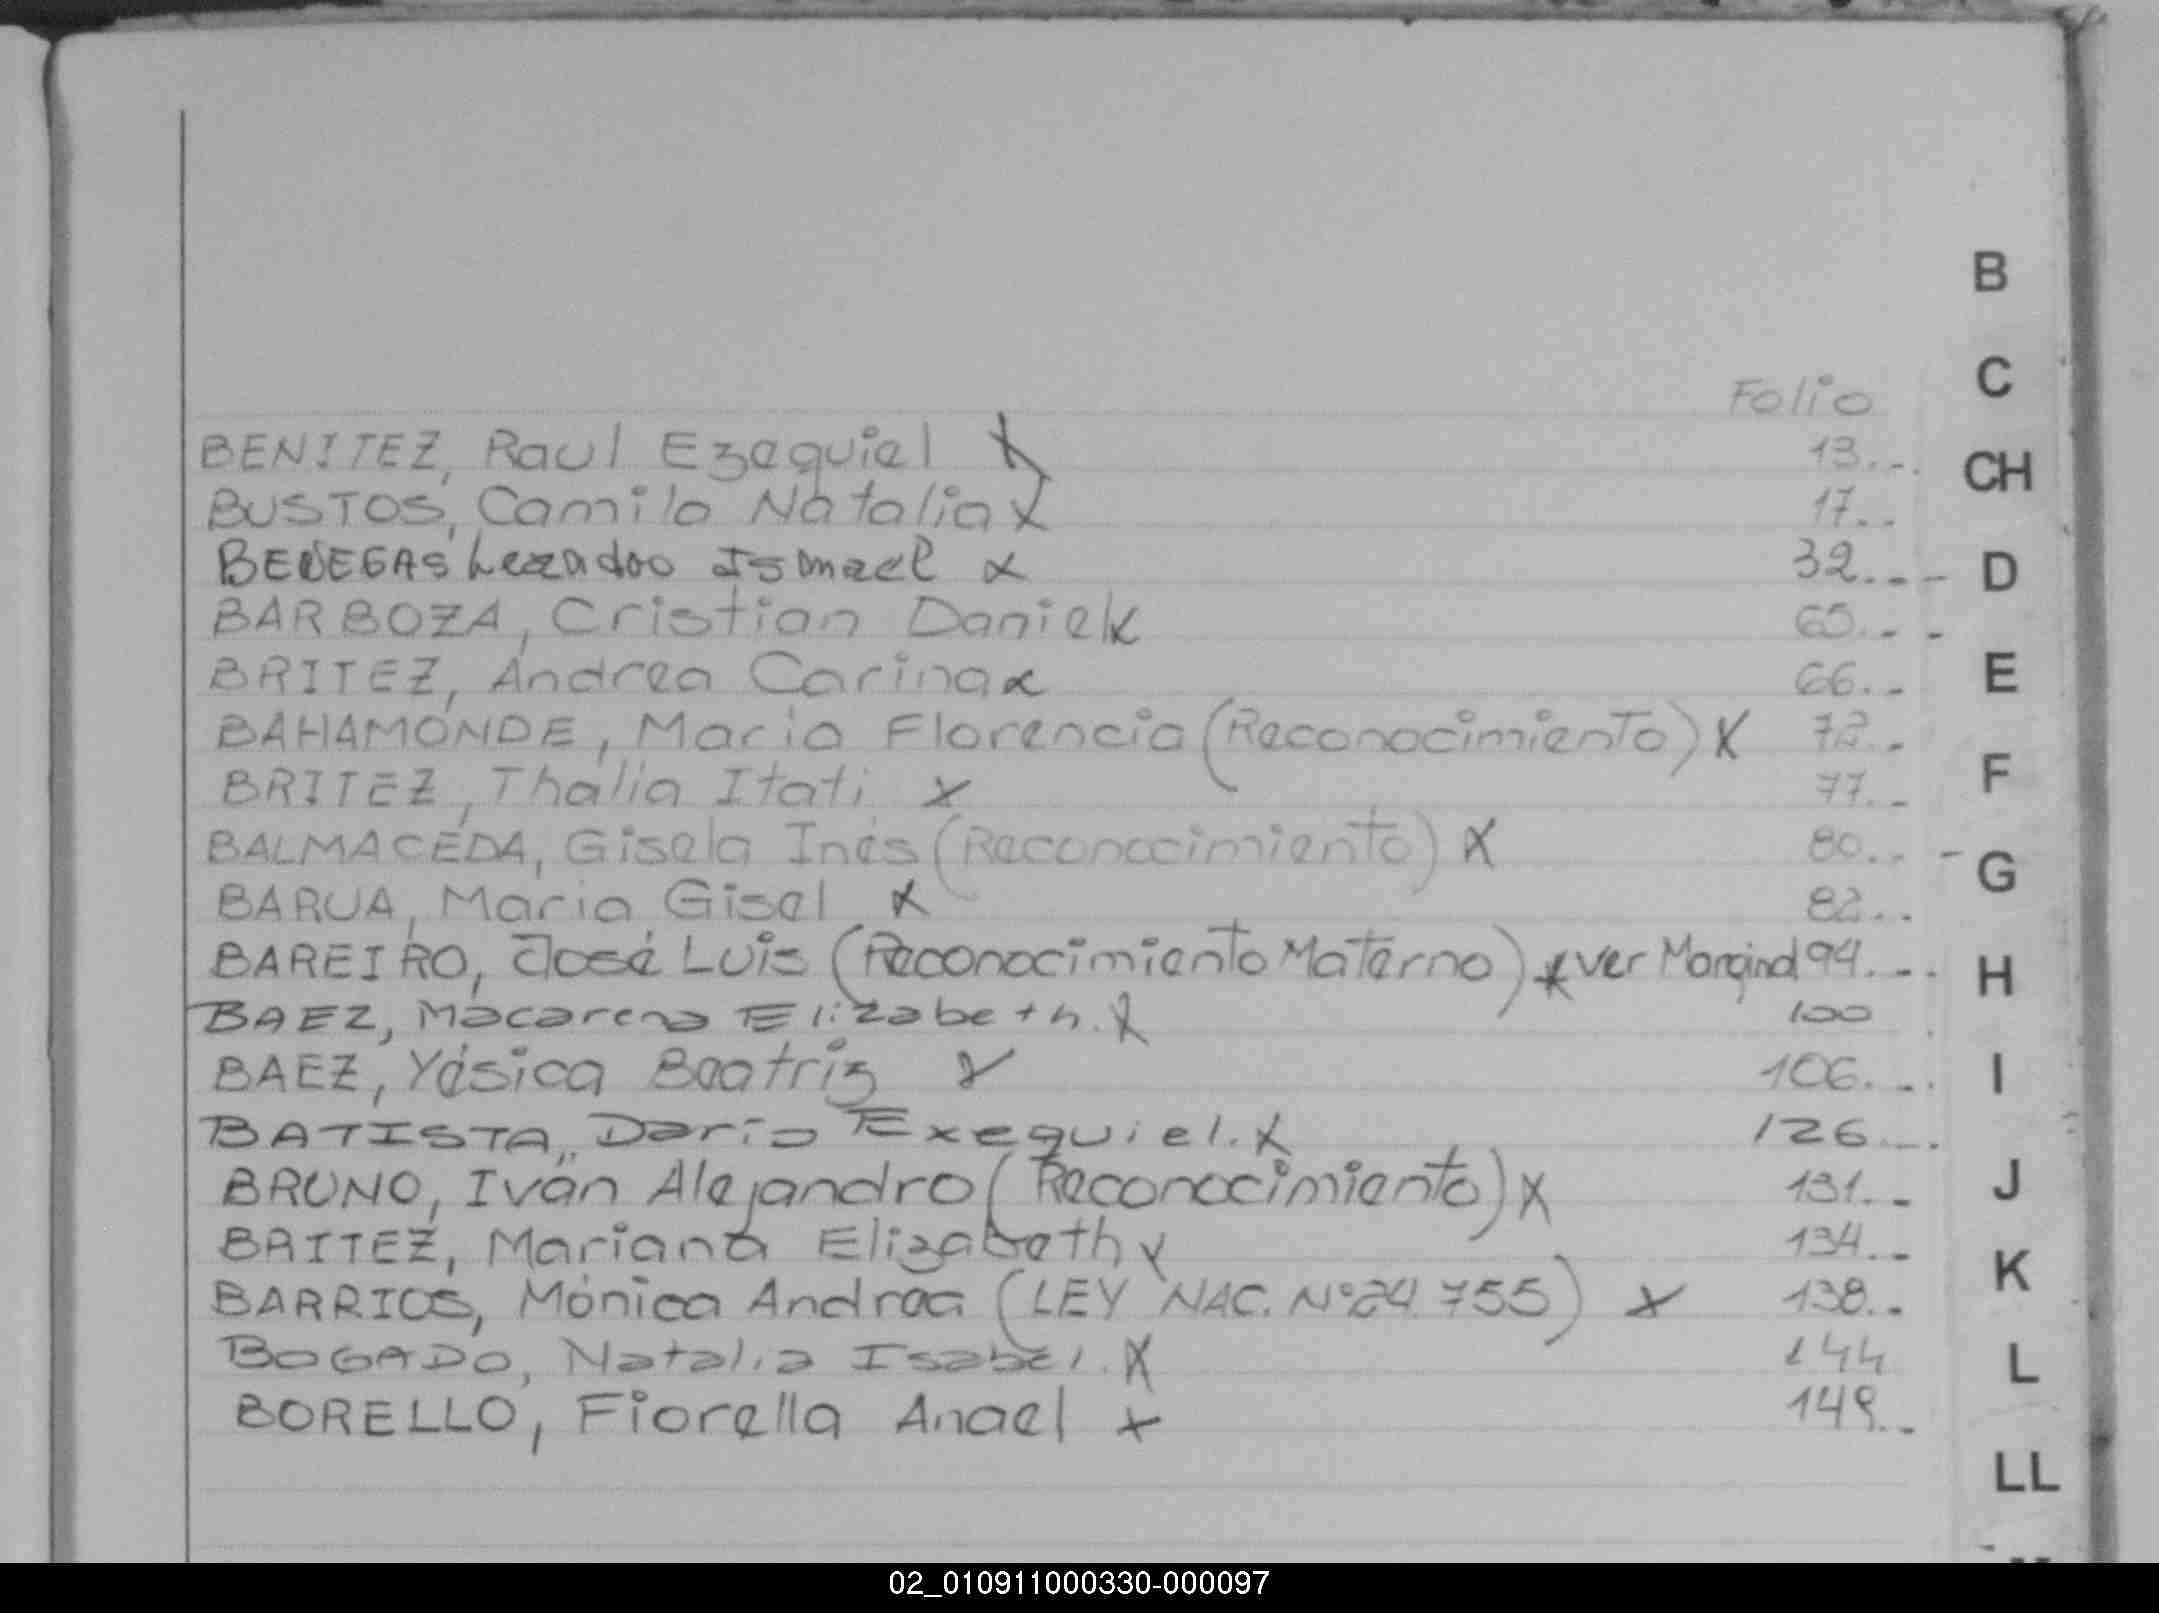 Folio
BENITEZ, Raul Ezequiel X 13...
BUSTOS, Camila Natalia X 17..
BENEGAS Leandro Ismael x 32...-
BARBOZA, Cristian Daniel x 65.--
BRITEZ, Andrea Carina x 66..
BAHAMONDE, Maria Florencia (Reconocimiento) X 72..
BRITEZ, Thalia Itati x 77..
BALMACEDA, Gisela Inés (Reconocimiento) X 80..-
BARUA, Maria Gisel x 82..
BAREIRO, José Luis (Reconocimiento Materno) x ver Marginal 94...
BAEZ, Macarena Elizabeth. X 100
BAEZ, Yésica Beatriz x 106...
BATISTA, Dario Exequiel. X 126...
BRUNO, Iván Alejandro (Reconocimiento) X 131..
BRITEZ, Mariana Elizabeth x 134..
BARRIOS, Mónica Andrea (LEY NAC. Nº 24.755) x 138..
BOGADO, Natalia Isabel. X 144
BORELLO, Fiorella Anael x 149..
B
C
CH
D
E
F
G
H
I
J
K
L
LL
02_010911000330-000097